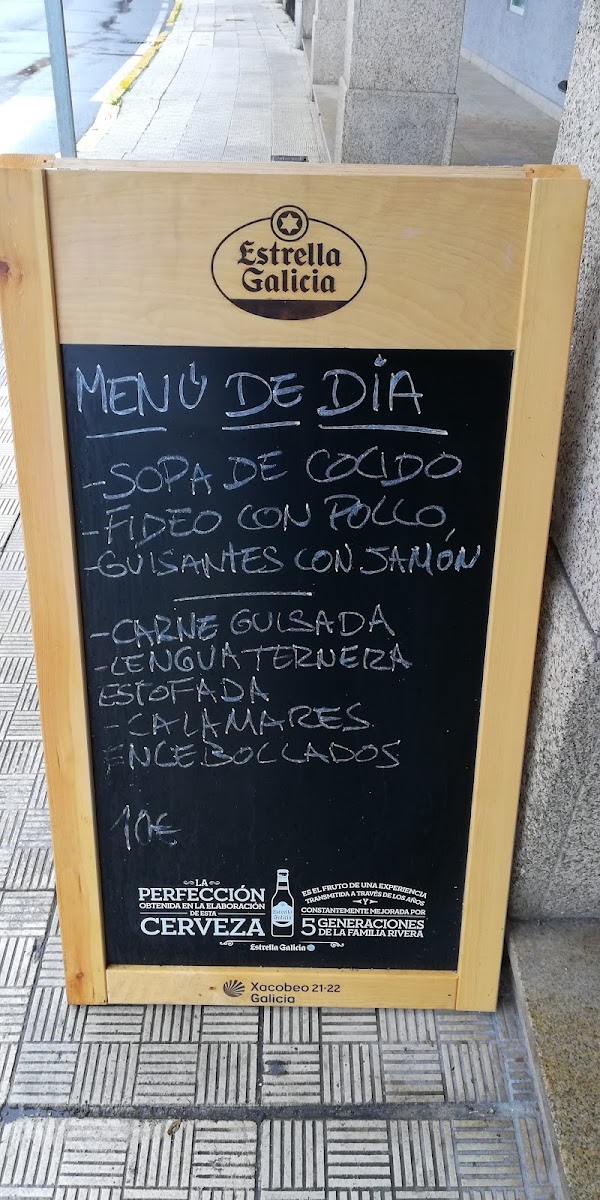 Estrella
Galicia
MENÚ DE DÍA
-SOPA DE COCIDO
-FIDEO CON POLLO
-GUISANTES CON JAMÓN
-CARNE GUISADA
-LENGUA TERNERA
ESTOFADA
-CALAMARES
ENCEBOLLADOS
10€
LA
PERFECCIÓN
OBTENIDA EN LA ELABORACIÓN
DE ESTA
CERVEZA
Estrella
Galicia
ES EL FRUTO DE UNA EXPERIENCIA
TRANSMITIDA A TRAVÉS DE LOS AÑOS
Y
CONSTANTEMENTE MEJORADA POR
5 GENERACIONES
DE LA FAMILIA RIVERA
Estrella Galicia
Xacobeo 21·22
Galicia